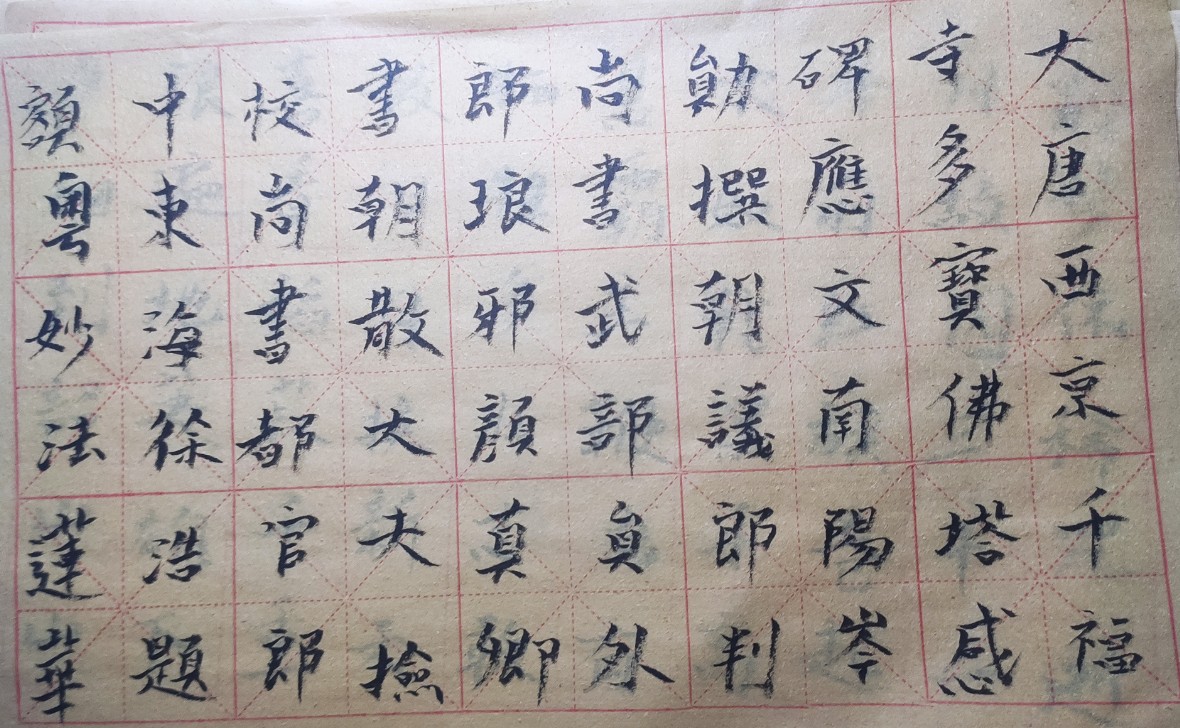 大唐西京千福
寺多寶佛塔感
碑應文南陽岑
勛撰朝議郎判
尚書武部員外
郎琅邪顏真卿
書朝散大夫撿
校尚書都官郎
中東海徐浩題
額粤妙法蓮華